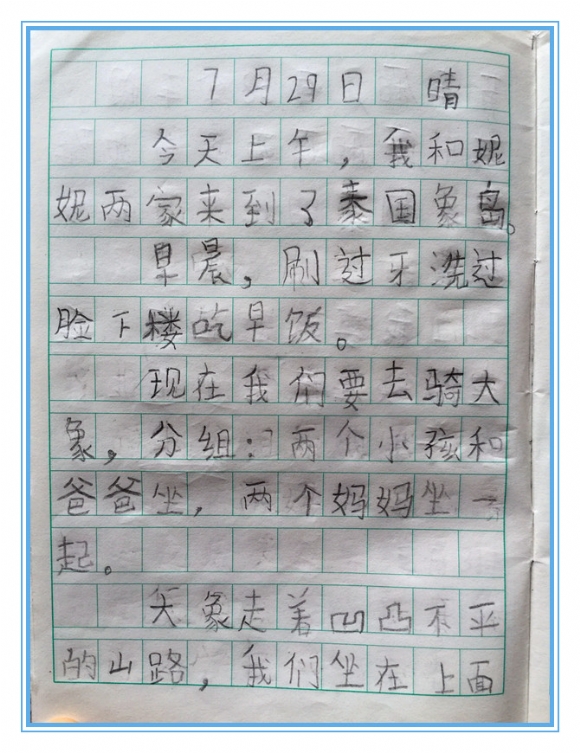 7月29日 晴
今天上午，我和妮
妮两家来到了泰国象岛。
早晨，刷过牙洗过
脸下楼吃早饭。
现在我们要去骑大
象，分组：两个小孩和
爸爸坐，两个妈妈坐一
起。
大象走着凹凸不平
的山路，我们坐在上面